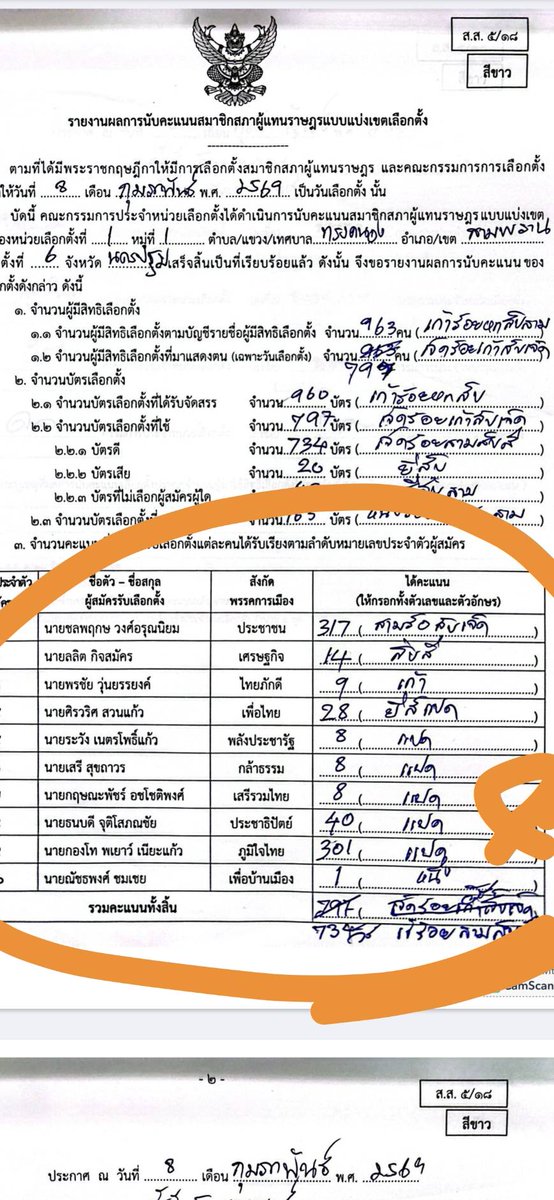 ส.ส. ๕/๑๘
สีขาว
รายงานผลการนับคะแนนสมาชิกสภาผู้แทนราษฎรแบบแบ่งเขตเลือกตั้ง
ตามที่ได้มีพระราชกฤษฎีกาให้มีการเลือกตั้งสมาชิกสภาผู้แทนราษฎร และคณะกรรมการการเลือกตั้ง
ให้วันที่ 8 เดือน กุมภาพันธ์ พ.ศ. ๒๕๖๙ เป็นวันเลือกตั้ง นั้น
บัดนี้ คณะกรรมการประจำหน่วยเลือกตั้งได้ดำเนินการนับคะแนนสมาชิกสภาผู้แทนราษฎรแบบแบ่งเขต
องหน่วยเลือกตั้งที่ 1 หมู่ที่ 1 ตำบล/แขวง/เทศบาล ทรงคนอง อำเภอ/เขต สามพราน
ตั้งที่ 6 จังหวัด นครปฐม เสร็จสิ้นเป็นที่เรียบร้อยแล้ว ดังนั้น จึงขอรายงานผลการนับคะแนน ของ
กตั้งดังกล่าว ดังนี้
๑. จำนวนผู้มีสิทธิเลือกตั้ง
๑.๑ จำนวนผู้มีสิทธิเลือกตั้งตามบัญชีรายชื่อผู้มีสิทธิเลือกตั้ง จำนวน 963 คน ( เก้าร้อยหกสิบสาม
๑.๒ จำนวนผู้มีสิทธิเลือกตั้งที่มาแสดงตน (เฉพาะวันเลือกตั้ง) จำนวน 963 คน ( เจ็ดร้อยเก้าสิบเจ็ด
797
๒. จำนวนบัตรเลือกตั้ง
๒.๑ จำนวนบัตรเลือกตั้งที่ได้รับจัดสรร จำนวน 960 บัตร ( เก้าร้อยหกสิบ
๒.๒ จำนวนบัตรเลือกตั้งที่ใช้ จำนวน 797 บัตร ( เจ็ดร้อยเก้าสิบเจ็ด
๒.๒.๑ บัตรดี จำนวน 734 บัตร ( เจ็ดร้อยสามสิบสี่
๒.๒.๒ บัตรเสีย จำนวน 20 บัตร ( ยี่สิบ
๒.๒.๓ บัตรที่ไม่เลือกผู้สมัครผู้ใด จำนวน บัตร
๒.๓ จำนวนบัตรเลือกตั้งที่ จำนวน 163 บัตร
๓. จำนวนคะแน เลือกตั้งแต่ละคนได้รับเรียงตามลำดับหมายเลขประจำตัวผู้สมัคร
ประจำตัว ชื่อตัว – ชื่อสกุล สังกัด ได้คะแนน
ผู้สมัครรับเลือกตั้ง พรรคการเมือง (ให้กรอกทั้งตัวเลขและตัวอักษร)
นายชลพฤกษ วงศ์อรุณนิยม ประชาชน 317 ( สามร้อสิบเจ็ด
นายลลิต กิจสมัคร เศรษฐกิจ 14 ( สิบสี่
นายพรชัย วุ่นยรรยงค์ ไทยภักดี 9 ( เก้า
นายศิรวริศ สวนแก้ว เพื่อไทย 28 ( ยี่สิแปด
นายระวัง เนตรโพธิ์แก้ว พลังประชารัฐ 8 ( แปด
นายเสรี สุขถาวร กล้าธรรม 8 ( แปด
นายกฤษณะพัชร์ อชโชติพงศ์ เสรีรวมไทย 8 ( แปด
นายธนบดี จุติโสภณชัย ประชาธิปัตย์ 40 ( แปด
นายกองโท พเยาว์ เนียะแก้ว ภูมิใจไทย 301 ( แปด
นายณัชธพงศ์ ชมเชย เพื่อบ้านเมือง 1 ( หนึ่
รวมคะแนนทั้งสิ้น 797 ( เจ็ดร้อยเก้าสิบเจ็ด
734
CamScan
- ๒ -
ส.ส. ๕/๑๘
สีขาว
ประกาศ ณ วันที่ 8 เดือน กุมภาพันธ์ พ.ศ. ๒๕๖๙